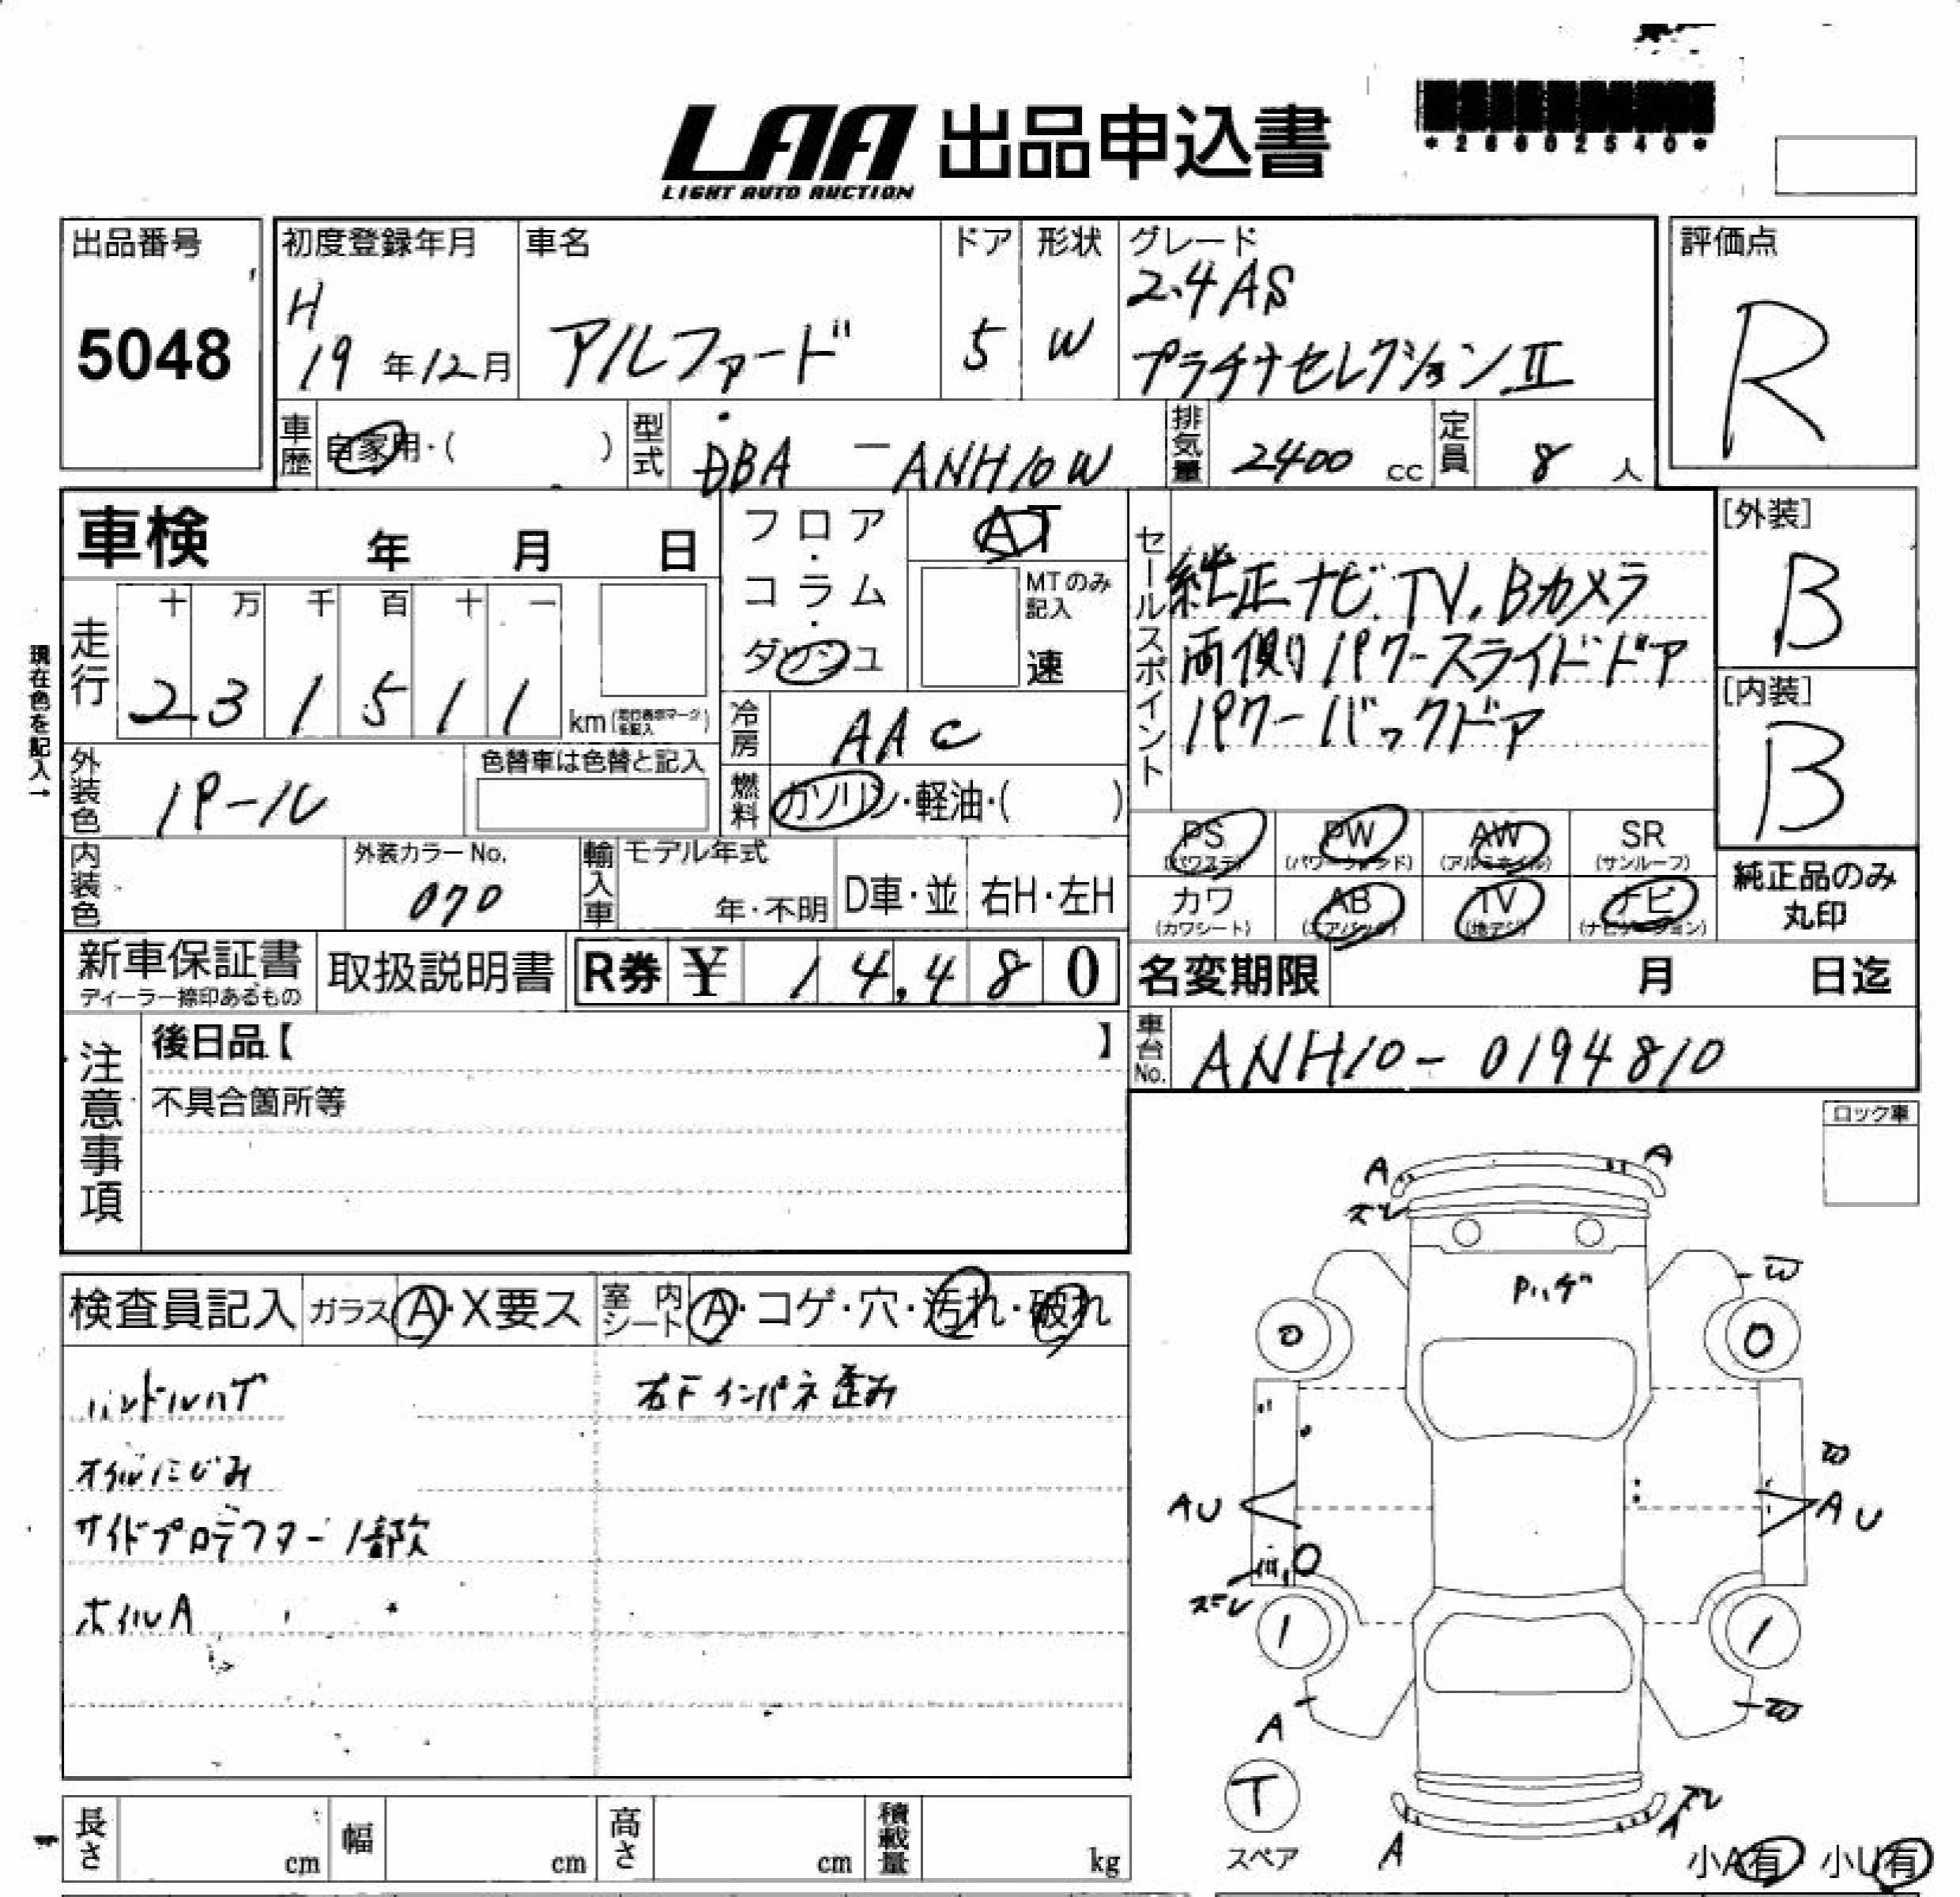 LAA 出品申込書
LIGHT AUTO AUCTION
*26602540*
出品番号
5048
初度登録年月
H
19年12月
車名
アルファード
ドア
5
形状
W
グレード
2.4 AS
プラチナセレクションⅡ
評価点
R
車歴
自家用・( )
型式
DBA - ANH10W
排気量
2400 cc
定員
8 人
車検 年 月 日
フロア・コラム・ダッシュ
AT
MTのみ記入
速
現在色を記入→
走行
十 万 千 百 十 一
2 3 1 5 1 1
km
外装色
パール
色替車は色替と記入
冷房
AAC
燃料
ガソリン・軽油・( )
セールスポイント
純正ナビ.TV.Bカメラ
両側パワースライドドア
パワーバックドア
[外装]
B
[内装]
B
内装色
外装カラーNo.
070
輸入車
モデル年式
年・不明
D車・並
右H・左H
PS (パワステ)
PW (パワーウィンド)
AW (アルミホイル)
SR (サンルーフ)
カワ (カワシート)
AB (エアバッグ)
TV (地デジ)
ナビ (ナビゲーション)
純正品のみ
丸印
新車保証書
ディーラー捺印あるもの
取扱説明書
R券 ¥ 14,480
名変期限 月 日迄
車台No.
ANH10-0194810
注意事項
後日品【 】
不具合箇所等
ロック車
検査員記入
ガラス A・X要ス
室内シート A・コゲ・穴・汚れ・破れ
ハンドルハゲ
オイルにじみ
サイドプロテクター1部欠
ホイルA
右Fインパネ歪み
A
A
ズレ
Pハゲ
W
0
0
W
AU
AU
0
ズレ
1
1
A
W
T
スペア
ズレ
A
A
小A有 小U有
長さ cm
幅 cm
高さ cm
積載量 kg